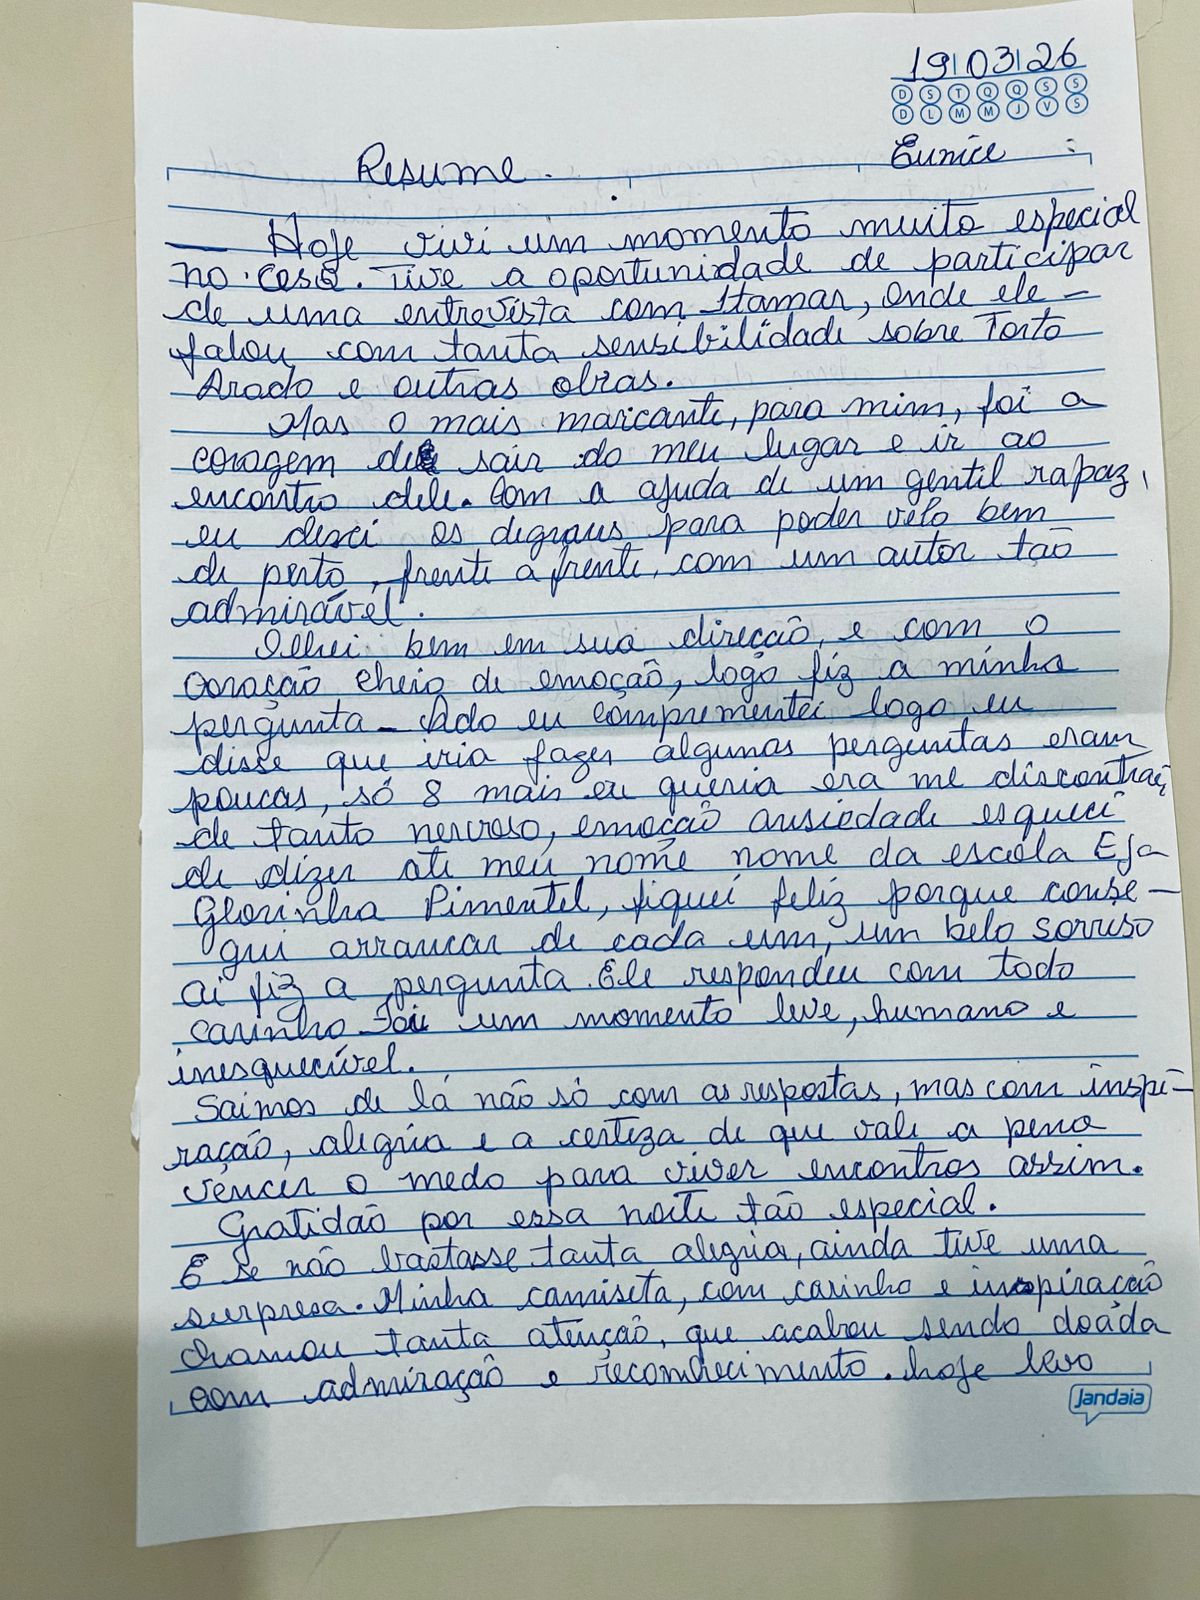 19 03 26
D S T Q Q S S
D L M M J V S
Resume. Eunice
Hoje vivi um momento muito especial
no. cesq. Tive a oportunidade de participar
de uma entrevista com Itamar, onde ele -
falou com tanta sensibilidade sobre Torto
Arado e outras obras.
Mas o mais marcante, para mim, foi a
coragem de sair do meu lugar e ir ao
encontro dele. Com a ajuda de um gentil rapaz,
eu desci os degraus para poder velo bem
de perto, frente a frente, com um autor tão
admirável.
Olhei bem em sua direção, e com o
coração cheio de emoção, logo fiz a minha
pergunta - Ado eu comprementei logo eu
disse que iria fazer algumas perguntas eram
poucas, só 8 mais eu queria era me discontrai,
de tanto nervoso, emoção ansiedade esqueci
de dizer ate meu nome nome da escola Eja
Glorinha Pimentel, fiquei feliz porque conse-
gui arrancar de cada um, um belo sorriso
ai fiz a pergunta. Ele respondeu com todo
carinho Foi um momento leve, humano e
inesquecível.
Saimos de lá não só com as respostas, mas com inspi-
ração, alegria e a certeza de que vale a pena
vencer o medo para viver encontros assim.
Gratidão por essa noite tão especial.
E se não bastasse tanta alegria, ainda tive uma
surpresa. Minha camiseta, com carinho e inspiração
chamou tanta atenção, que acabou sendo doada
com admiração e reconhecimento. hoje levo
Jandaia